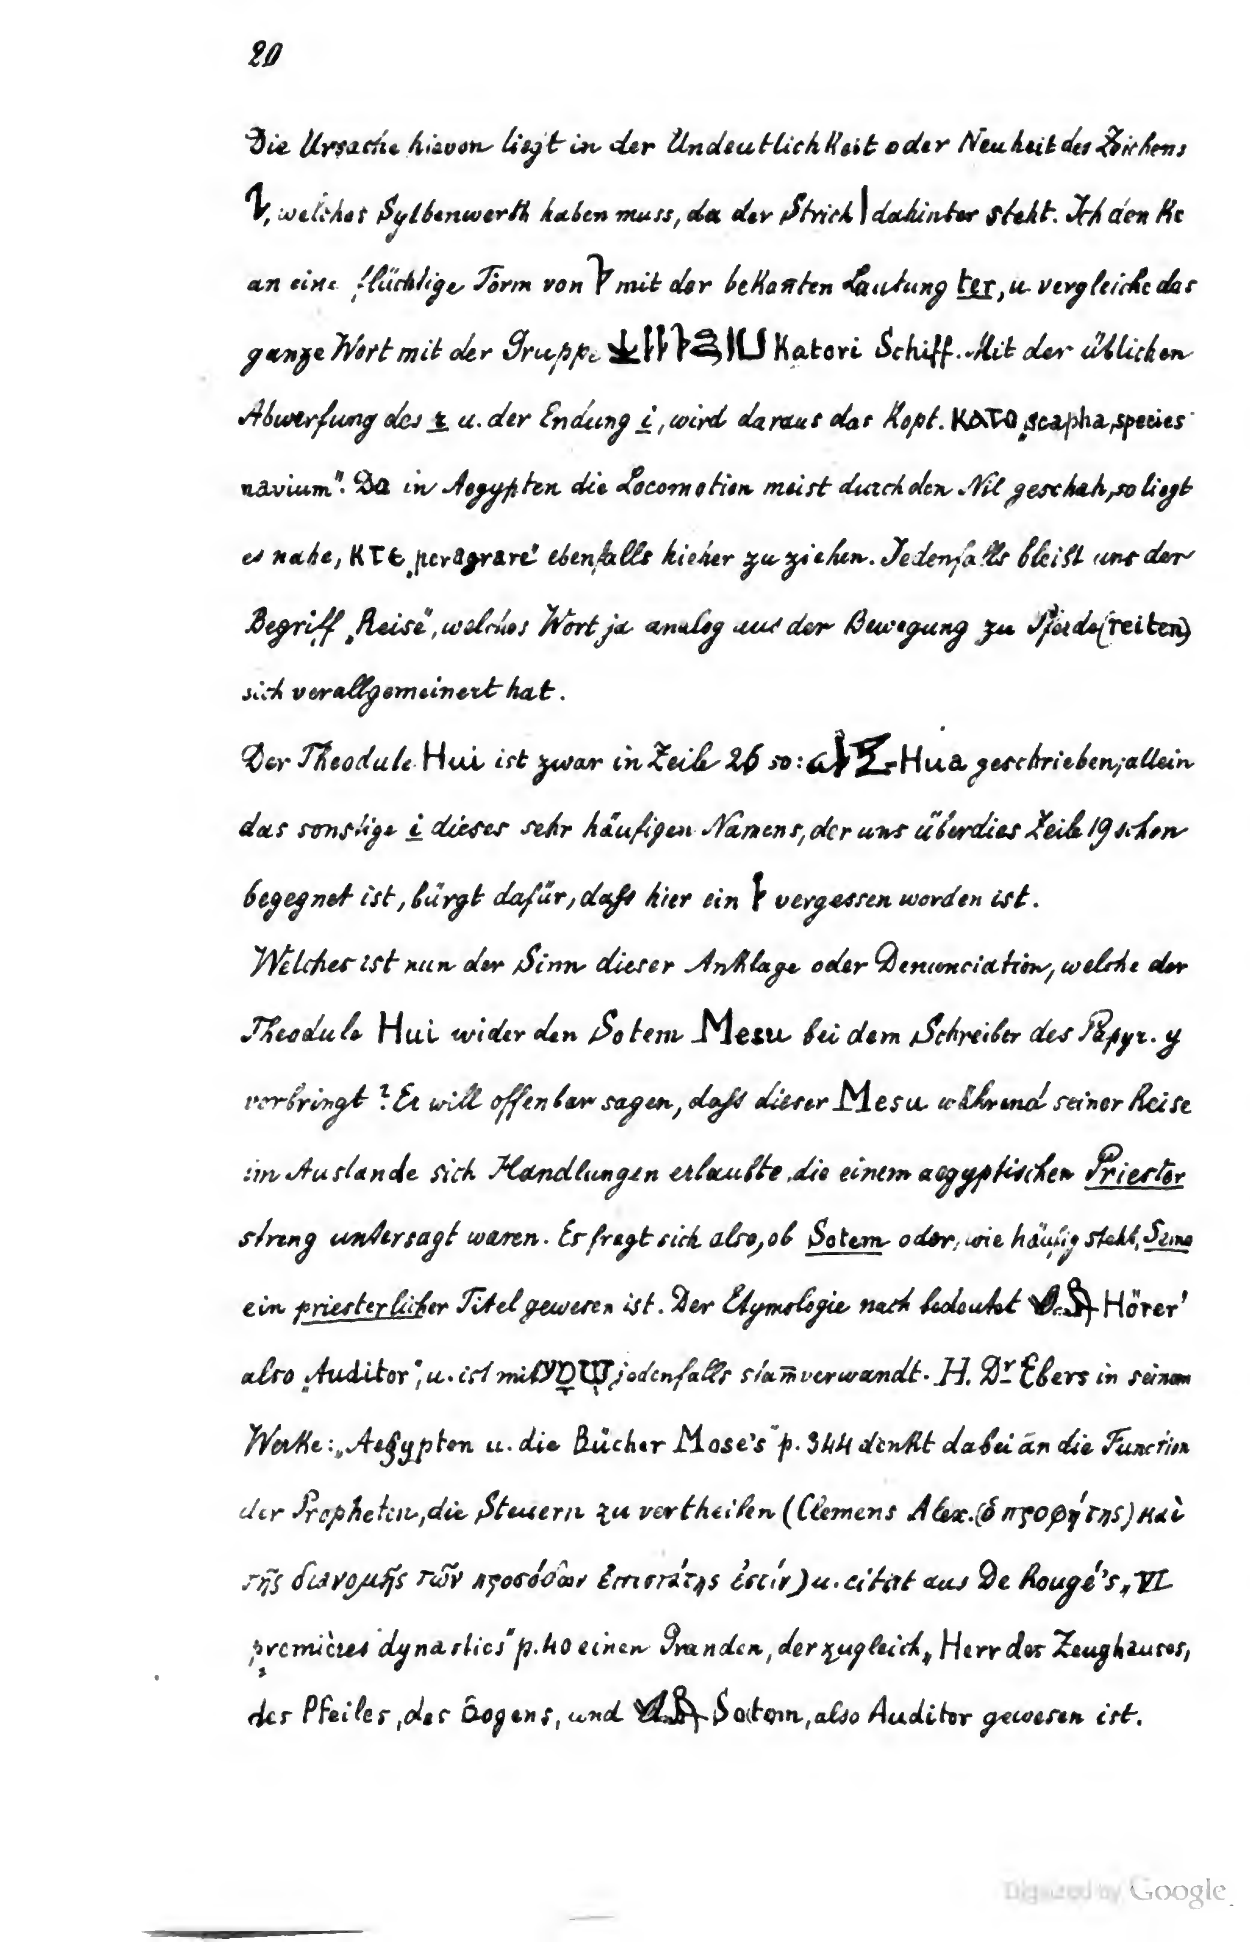 20
Die Ursache hievon liegt in der Undeutlichkeit oder Neuheit des Zeichens
, welches Sylbenwerth haben muss, da der Strich | dahinter steht. Ich denke
an eine flüchtige Form von mit der bekan̄ten Lautung ter, u. vergleiche das
ganze Wort mit der Gruppe Katori Schiff. Mit der üblichen
Abwerfung des r u. der Endung i, wird daraus das Kopt. ⲕⲁⲧⲟ „scapha, species
navium". Da in Aegypten die Locomotion meist durch den Nil geschah, so liegt
es nahe, ⲕⲧⲉ „peragrare" ebenfalls hieher zu ziehen. Jedenfalls bleibt uns der
Begriff „Reise", welches Wort ja analog aus der Bewegung zu Pferde (reiten)
sich verallgemeinert hat.
Der Theodule Hui ist zwar in Zeile 26 so: Hua geschrieben; allein
das sonstige i dieses sehr häufigen Namens, der uns überdies Zeile 19 schon
begegnet ist, bürgt dafür, daſs hier ein vergessen worden ist.
Welches ist nun der Sinn dieser Anklage oder Denunciation, welche der
Theodule Hui wider den Sotem Mesu bei dem Schreiber des Papyr. y
vorbringt? Er will offenbar sagen, daſs dieser Mesu während seiner Reise
im Auslande sich Handlungen erlaubte, die einem aegyptischen Priester
streng untersagt waren. Es fragt sich also, ob Sotem oder, wie häufig steht, Seme
ein priesterlicher Titel gewesen ist. Der Etymologie nach bedeutet Hörer'
also „Auditor", u. ist mit שׁמע jedenfalls stam̄verwandt. H. Dr Ebers in seinem
Werke: „Aegypten u. die Bücher Mose's" p. 344 denkt dabei an die Function
der Propheten, die Steuern zu vertheilen (Clemens Alex. (ὁ προφήτης) καὶ
τῆς διανομῆς τῶν προσόδων ἐπιστάτης ἐστίν) u. citirt aus De Rougé's „VI
premières dynasties" p. 40 einen Granden, der zugleich „Herr des Zeughauses,
des Pfeiles, des Bogens, und Sotem, also Auditor gewesen ist.
Digitized by Google